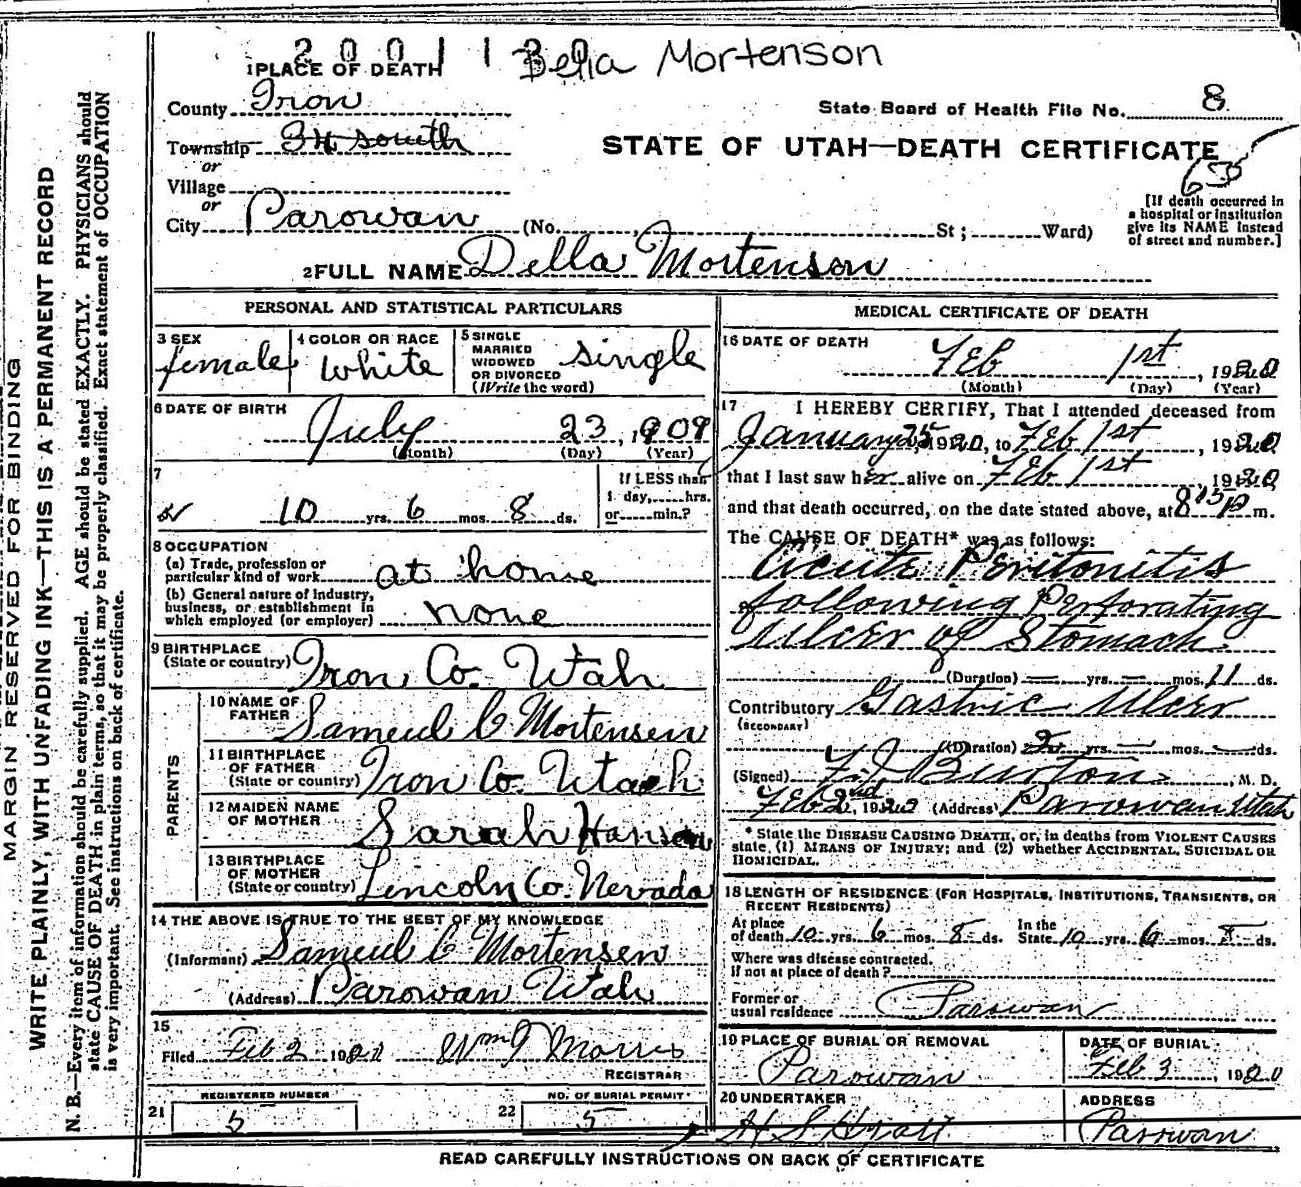 2 0 0 1 1 Bella Mortenson
1 PLACE OF DEATH
County Iron
State Board of Health File No. 8
Township 34 south
or
STATE OF UTAH—DEATH CERTIFICATE
Village
or
City Parowan (No. St ; Ward)
[If death occurred in
a hospital or institution
give its NAME instead
of street and number.]
2 FULL NAME Della Mortenson
PERSONAL AND STATISTICAL PARTICULARS
3 SEX
female
4 COLOR OR RACE
White
5 SINGLE
MARRIED
WIDOWED
OR DIVORCED
(Write the word)
single
6 DATE OF BIRTH
July 23, 1909
(Month) (Day) (Year)
7
10 yrs. 6 mos. 8 ds.
If LESS than
1 day, hrs.
or min.?
8 OCCUPATION
(a) Trade, profession or
particular kind of work at home
(b) General nature of industry,
business, or establishment in
which employed (or employer) none
9 BIRTHPLACE
(State or country) Iron Co. Utah
PARENTS
10 NAME OF
FATHER Samuel C Mortensen
11 BIRTHPLACE
OF FATHER
(State or country) Iron Co. Utah
12 MAIDEN NAME
OF MOTHER Sarah Hanson
13 BIRTHPLACE
OF MOTHER
(State or country) Lincoln Co. Nevada
14 THE ABOVE IS TRUE TO THE BEST OF MY KNOWLEDGE
(Informant) Samuel C Mortensen
(Address) Parowan Utah
15
Filed Feb 2 19 Wm J Morris
REGISTRAR
REGISTERED NUMBER
21 5
NO. OF BURIAL PERMIT
22 5
MEDICAL CERTIFICATE OF DEATH
16 DATE OF DEATH
Feb 1st, 1920
(Month) (Day) (Year)
17 I HEREBY CERTIFY, That I attended deceased from
January 25, 1920, to Feb 1st, 1920
that I last saw her alive on Feb 1st, 1920,
and that death occurred, on the date stated above, at 8 15 P m.
The CAUSE OF DEATH* was as follows:
Acute Peritonitis
following Perforating
Ulcer of Stomach.
(Duration) — yrs. — mos. 11 ds.
Contributory Gastric Ulcer
(SECONDARY)
(Duration) 2 yrs. — mos. — ds.
(Signed) F. J. Burton, M. D.
Feb 2nd, 19 (Address) Parowan Utah
* State the DISEASE CAUSING DEATH, or, in deaths from VIOLENT CAUSES
state, (1) MEANS OF INJURY; and (2) whether ACCIDENTAL, SUICIDAL OR
HOMICIDAL.
18 LENGTH OF RESIDENCE (FOR HOSPITALS, INSTITUTIONS, TRANSIENTS, OR
RECENT RESIDENTS)
At place
of death 10 yrs. 6 mos. 8 ds.
In the
State 10 yrs. 6 mos. 8 ds.
Where was disease contracted.
if not at place of death?
Former or
usual residence Parowan
19 PLACE OF BURIAL OR REMOVAL
Parowan
DATE OF BURIAL
Feb 3, 1920
20 UNDERTAKER
H S Hyatt
ADDRESS
Parowan
READ CAREFULLY INSTRUCTIONS ON BACK OF CERTIFICATE
MARGIN RESERVED FOR BINDING
WRITE PLAINLY, WITH UNFADING INK—THIS IS A PERMANENT RECORD
N. B.—Every item of information should be carefully supplied. AGE should be stated EXACTLY. PHYSICIANS should
state CAUSE OF DEATH in plain terms, so that it may be properly classified. Exact statement of OCCUPATION
is very important. See instructions on back of certificate.